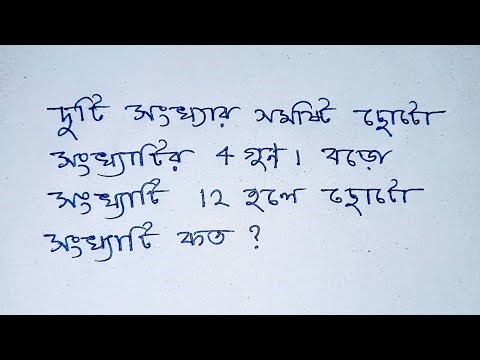 দুটি সংখ্যার সমষ্টি ছোটো
সংখ্যাটির 4 গুন। বড়ো
সংখ্যাটি 12 হলে ছোটো
সংখ্যাটি কত ?